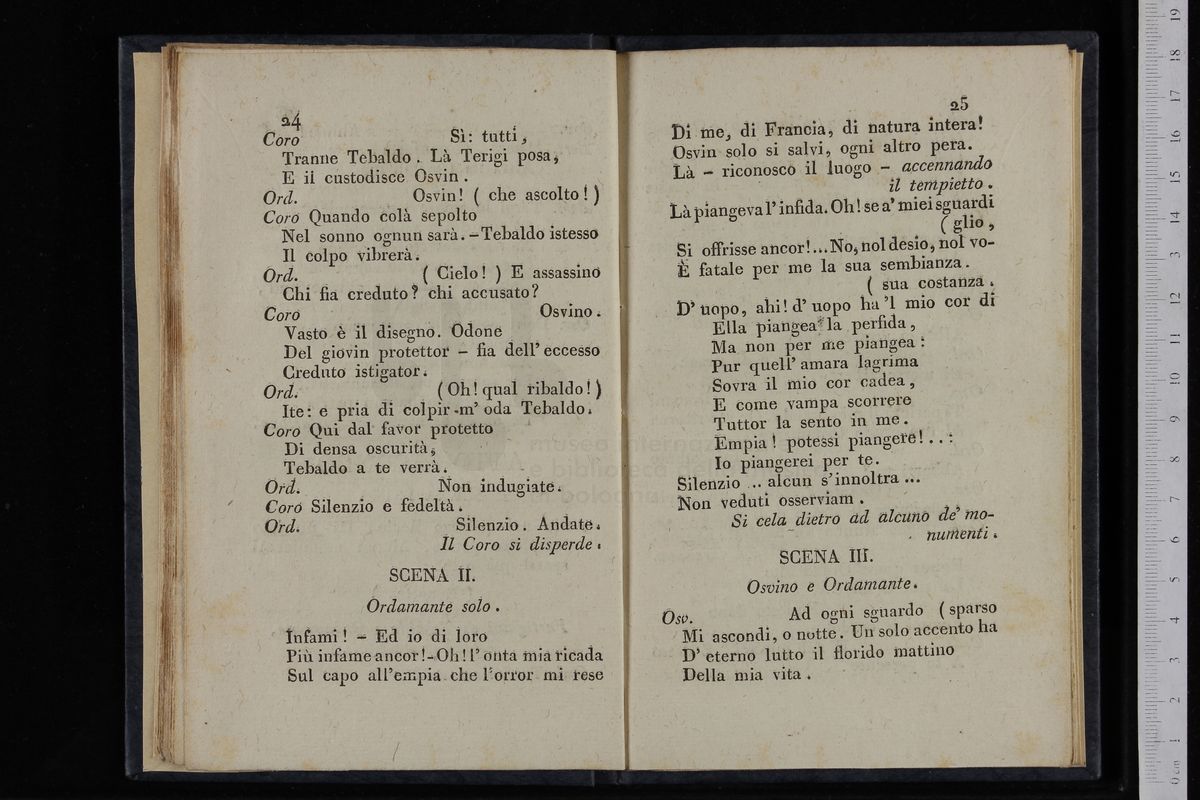 24
Coro Sì: tutti,
Tranne Tebaldo. Là Terigi posa,
E il custodisce Osvin.
Ord. Osvin! ( che ascolto! )
Coro Quando colà sepolto
Nel sonno ognun sarà. – Tebaldo istesso
Il colpo vibrerà.
Ord. ( Cielo! ) E assassino
Chi fia creduto? chi accusato?
Coro Osvino.
Vasto è il disegno. Odone
Del giovin protettor – fia dell' eccesso
Creduto istigator.
Ord. ( Oh! qual ribaldo! )
Ite: e pria di colpir - m' oda Tebaldo.
Coro Qui dal favor protetto
Di densa oscurità,
Tebaldo a te verrà.
Ord. Non indugiate.
Coro Silenzio e fedeltà.
Ord. Silenzio. Andate.
Il Coro si disperde.
SCENA II.
Ordamante solo.
Infami! – Ed io di loro
Più infame ancor! - Oh! l' onta mia ricada
Sul capo all' empia che l'orror mi rese
25
Di me, di Francia, di natura intera!
Osvin solo si salvi, ogni altro pera.
Là – riconosco il luogo – accennando
il tempietto.
Là piangeva l' infida. Oh! se a' miei sguardi
( glio,
Si offrisse ancor!... No, nol desio, nol vo-
È fatale per me la sua sembianza.
( sua costanza.
D' uopo, ahi! d' uopo ha 'l mio cor di
Ella piangea la perfida,
Ma non per me piangea:
Pur quell' amara lagrima
Sovra il mio cor cadea,
E come vampa scorrere
Tuttor la sento in me.
Empia! potessi piangere!...
Io piangerei per te.
Silenzio ... alcun s' innoltra ...
Non veduti osserviam.
Si cela dietro ad alcuno de' mo-
numenti.
SCENA III.
Osvino e Ordamante.
Osv. Ad ogni sguardo ( sparso
Mi ascondi, o notte. Un solo accento ha
D' eterno lutto il florido mattino
Della mia vita.